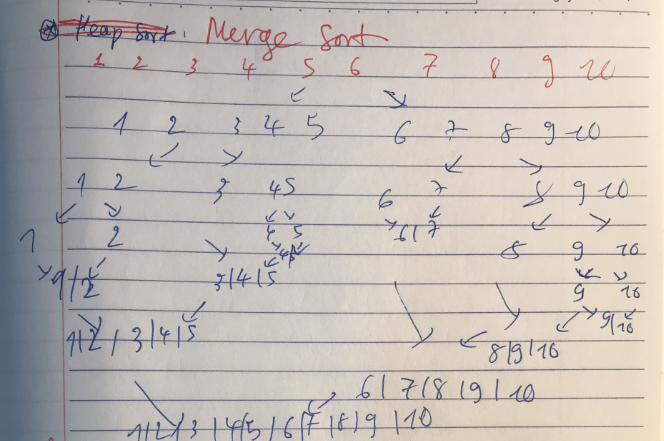 Heap Sort: Merge Sort
1 2 3 4 5 6 7 8 9 10
1 2 3 4 5 6 7 8 9 10
1 2 3 45 6 7 8 9 10
1 2 4 5 6|7
4|5 8 9 10
1|2 3|4|5 9 10
9|10
1|2| 3|4|5 8|9|10
6|7|8|9|10
1|2|3|4|5|6|7|8|9|10